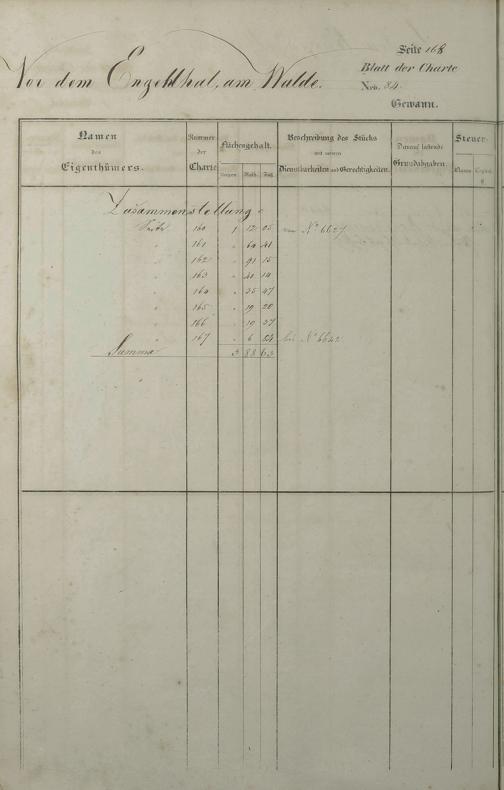 Seite 168
Blatt der Charte
Nro. 84.
Gewann.
Vor dem Engelthal, am Walde.
Namen des Eigenthümers.
Nummer der Charte
Flächengehalt.
Morgen Ruth. Fuß.
Beschreibung des Stücks und dessen Dienstbarkeiten und Gerechtigkeiten.
Darauf haftende Grundabgaben.
Steuer-
Zusammenstellung
Seite 160 1 12 05 von No 6627
" 161 " 60 41
" 162 " 91 15
" 163 " 40 14
" 164 " 35 47
" 165 " 19 20
" 166 " 19 37
" 167 " 6 84 bis No 6642
Summa 3 88 63